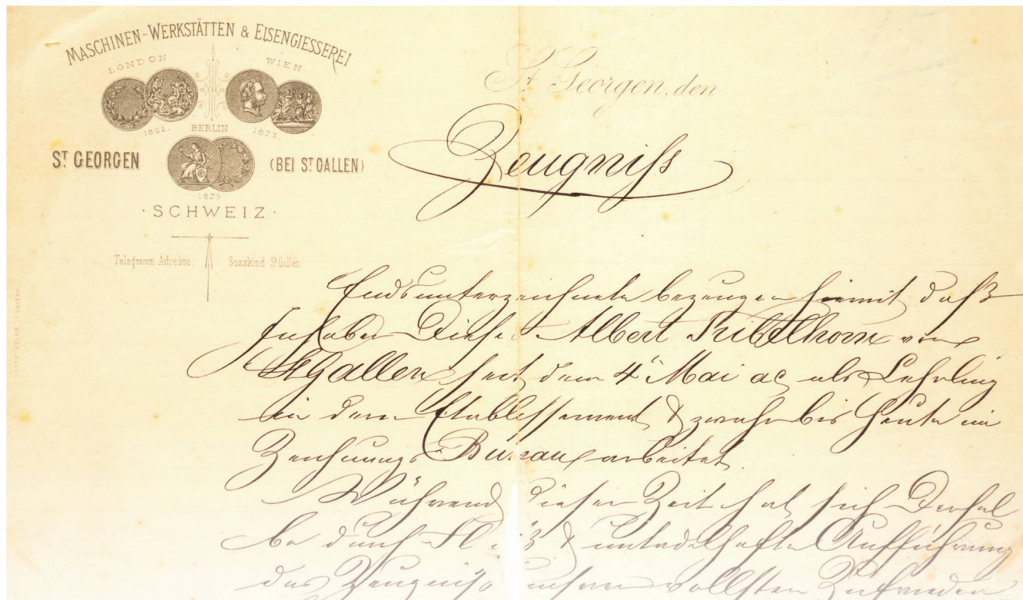 MASCHINEN-WERKSTÄTTEN & EISENGIESSEREI
LONDON WIEN
1862. BERLIN 1873.
ST GEORGEN (BEI ST GALLEN)
1879
·SCHWEIZ·
Telegramm Adresse: Susskind St Gallen
St Georgen, den
Zeugniss
Endsunterzeichnete bezeugen hiemit daß
Inhaber Dieses Albert Tribelhorn von
St Gallen seit dem 4t Mai ac als Lehrling
in dem Etablissement & zwahr bis Heute im
Zeichnungs Bureau arbeitet.
Während dieser Zeit hat sich Dersel
be durch Fleiß & untadelhafte Aufführung
das Zeugniß unserer vollsten Zufrieden